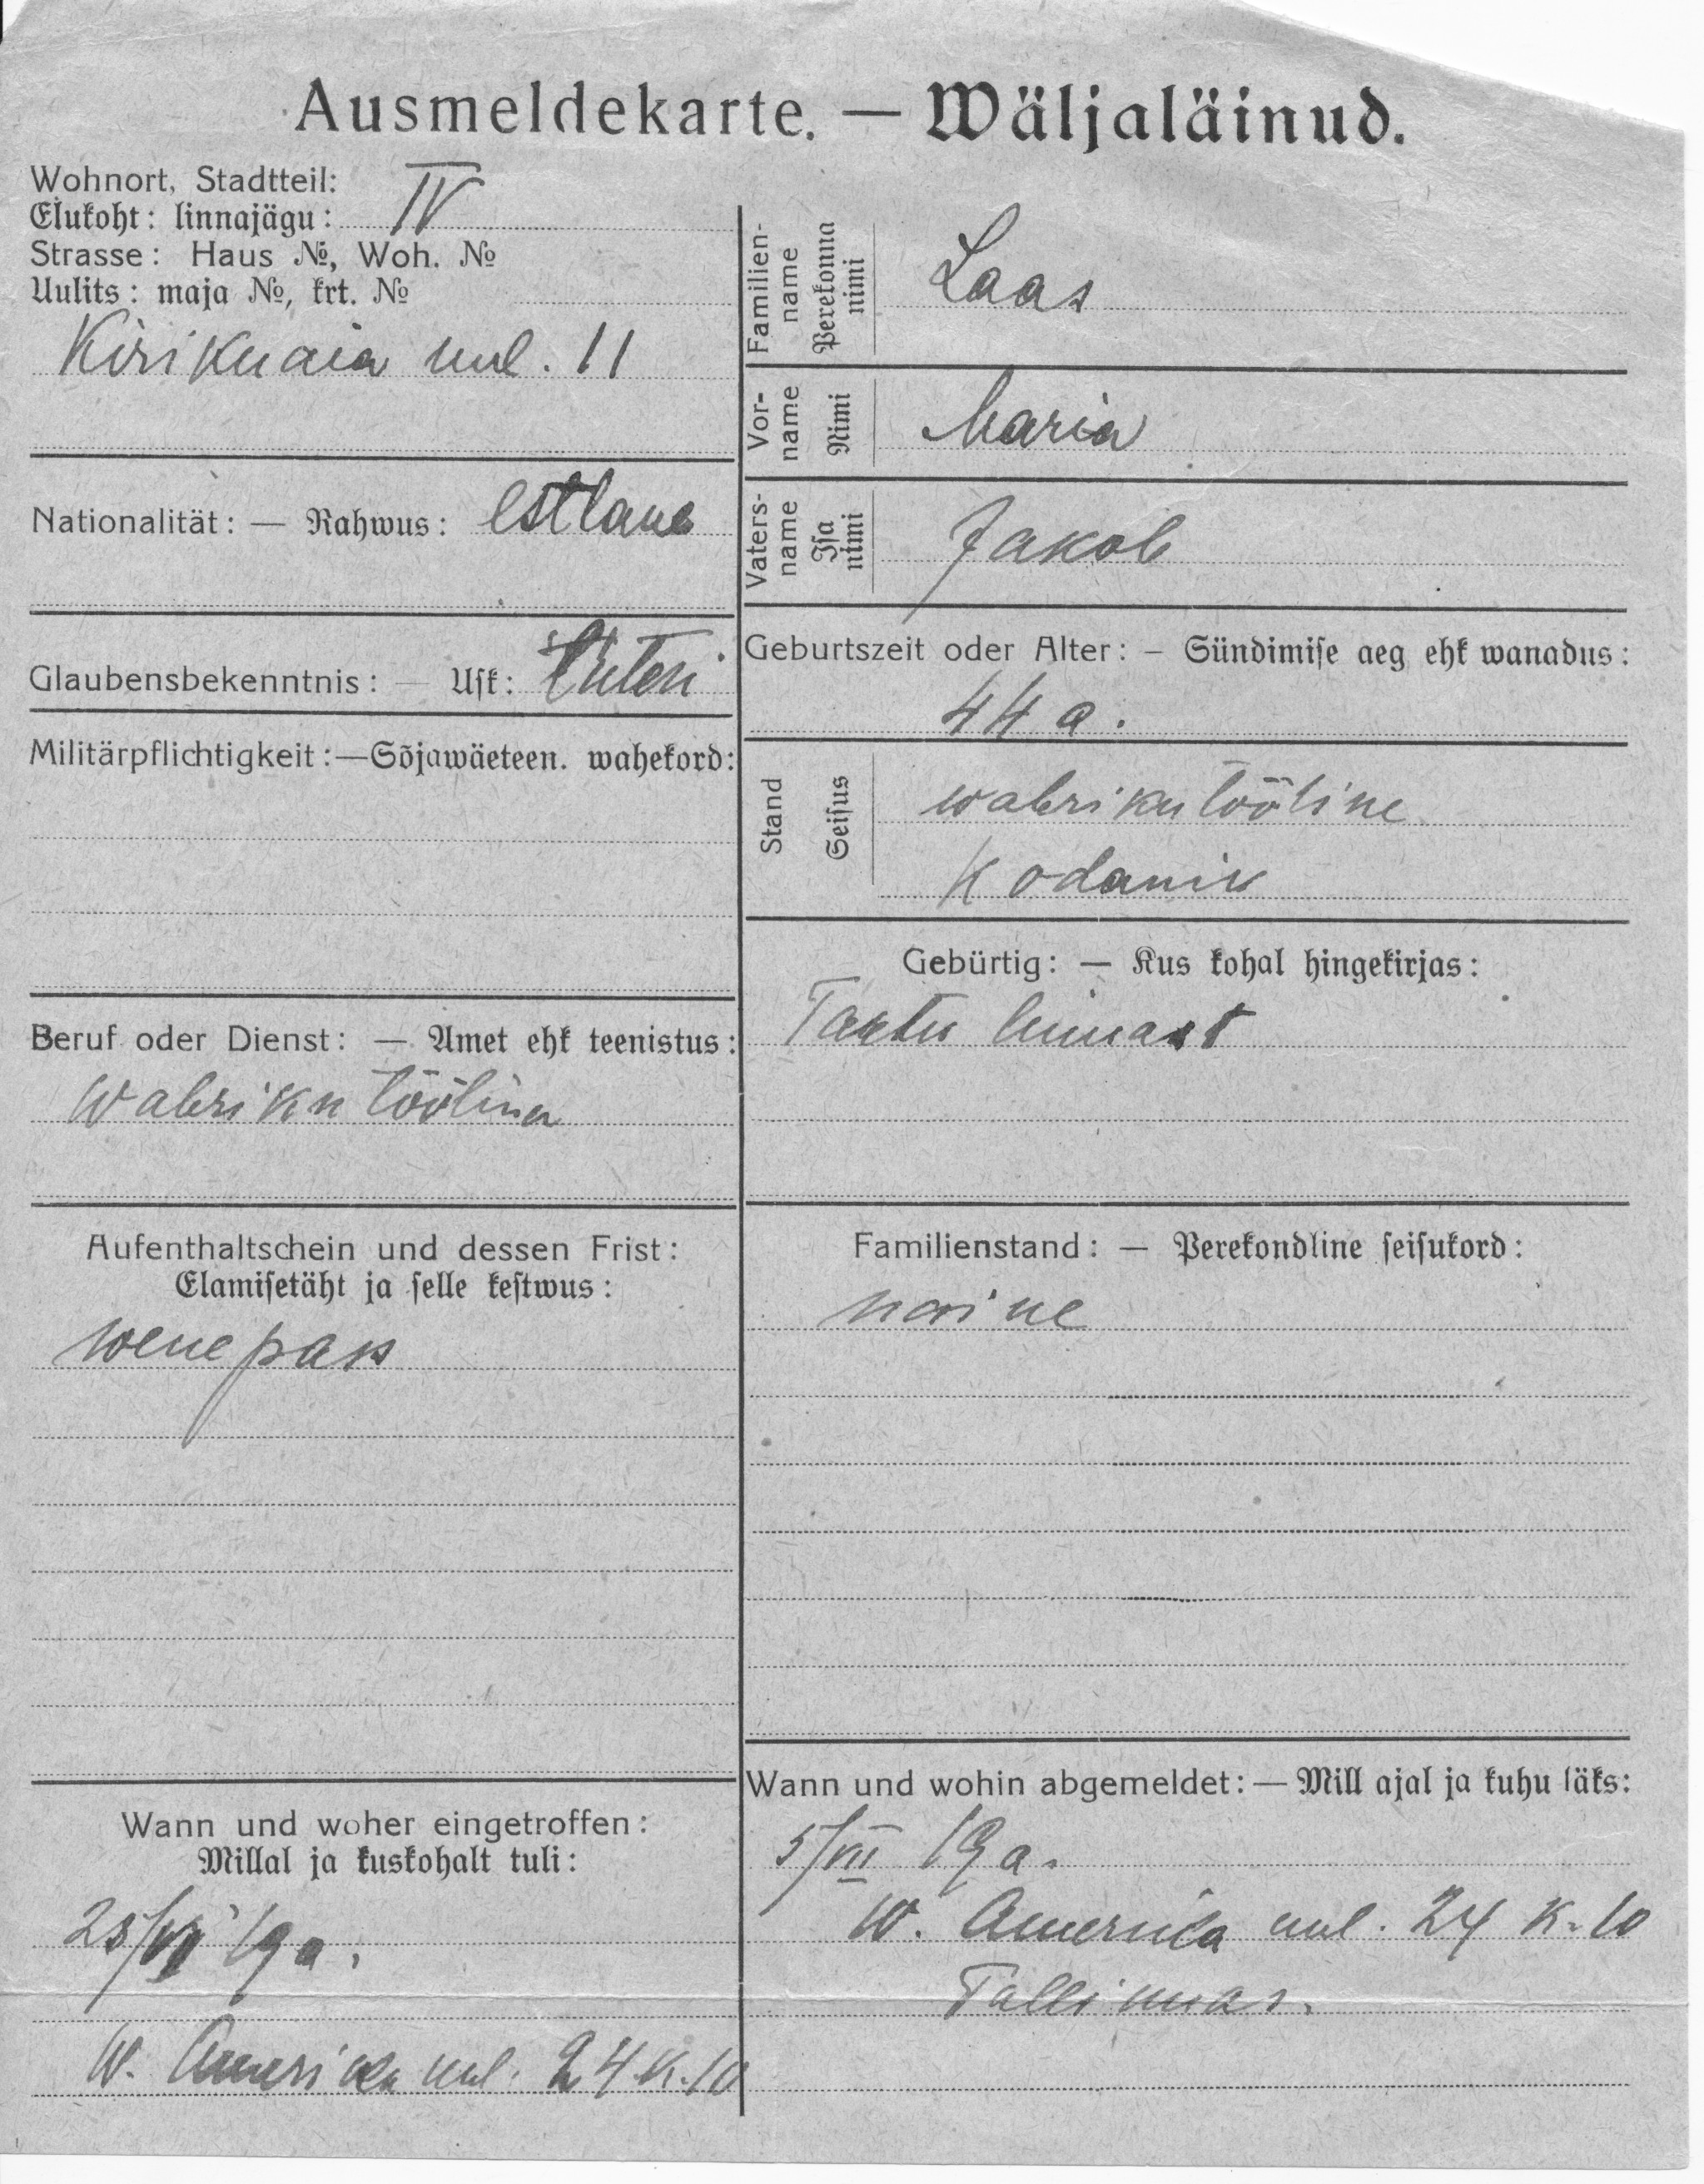 Ausmeldekarte. — Wäljaläinud.
Wohnort, Stadtteil:
Elukoht: linnajägu: IV
Strasse: Haus №, Woh. №
Uulits: maja №, krt. №
Kirikuaia uul. 11
Nationalität: — Rahwus: estlane
Glaubensbekenntnis: — Usk: Luteri
Militärpflichtigkeit: — Sõjawäeteen. wahekord:
Beruf oder Dienst: — Amet ehk teenistus:
Wabriku tööline
Aufenthaltschein und dessen Frist:
Elamisetäht ja selle kestwus:
wene pass
Wann und woher eingetroffen:
Millal ja kuskohalt tuli:
19 a.
W. Amerika uul. 24 K. 10
Familien-
name
Perekonna
nimi
Laas
Vor-
name
Nimi
Maria
Vaters-
name
Isa
nimi
Jakob
Geburtszeit oder Alter: — Sündimise aeg ehk wanadus:
44 a.
Stand
Seisus
wabriku tööline
Kodanik
Gebürtig: — Kus kohal hingekirjas:
Tartu linnast
Familienstand: — Perekondline seisukord:
naine
Wann und wohin abgemeldet: — Mill ajal ja kuhu läks:
19 a.
W. America uul. 24 K. 10
Tallinnas.